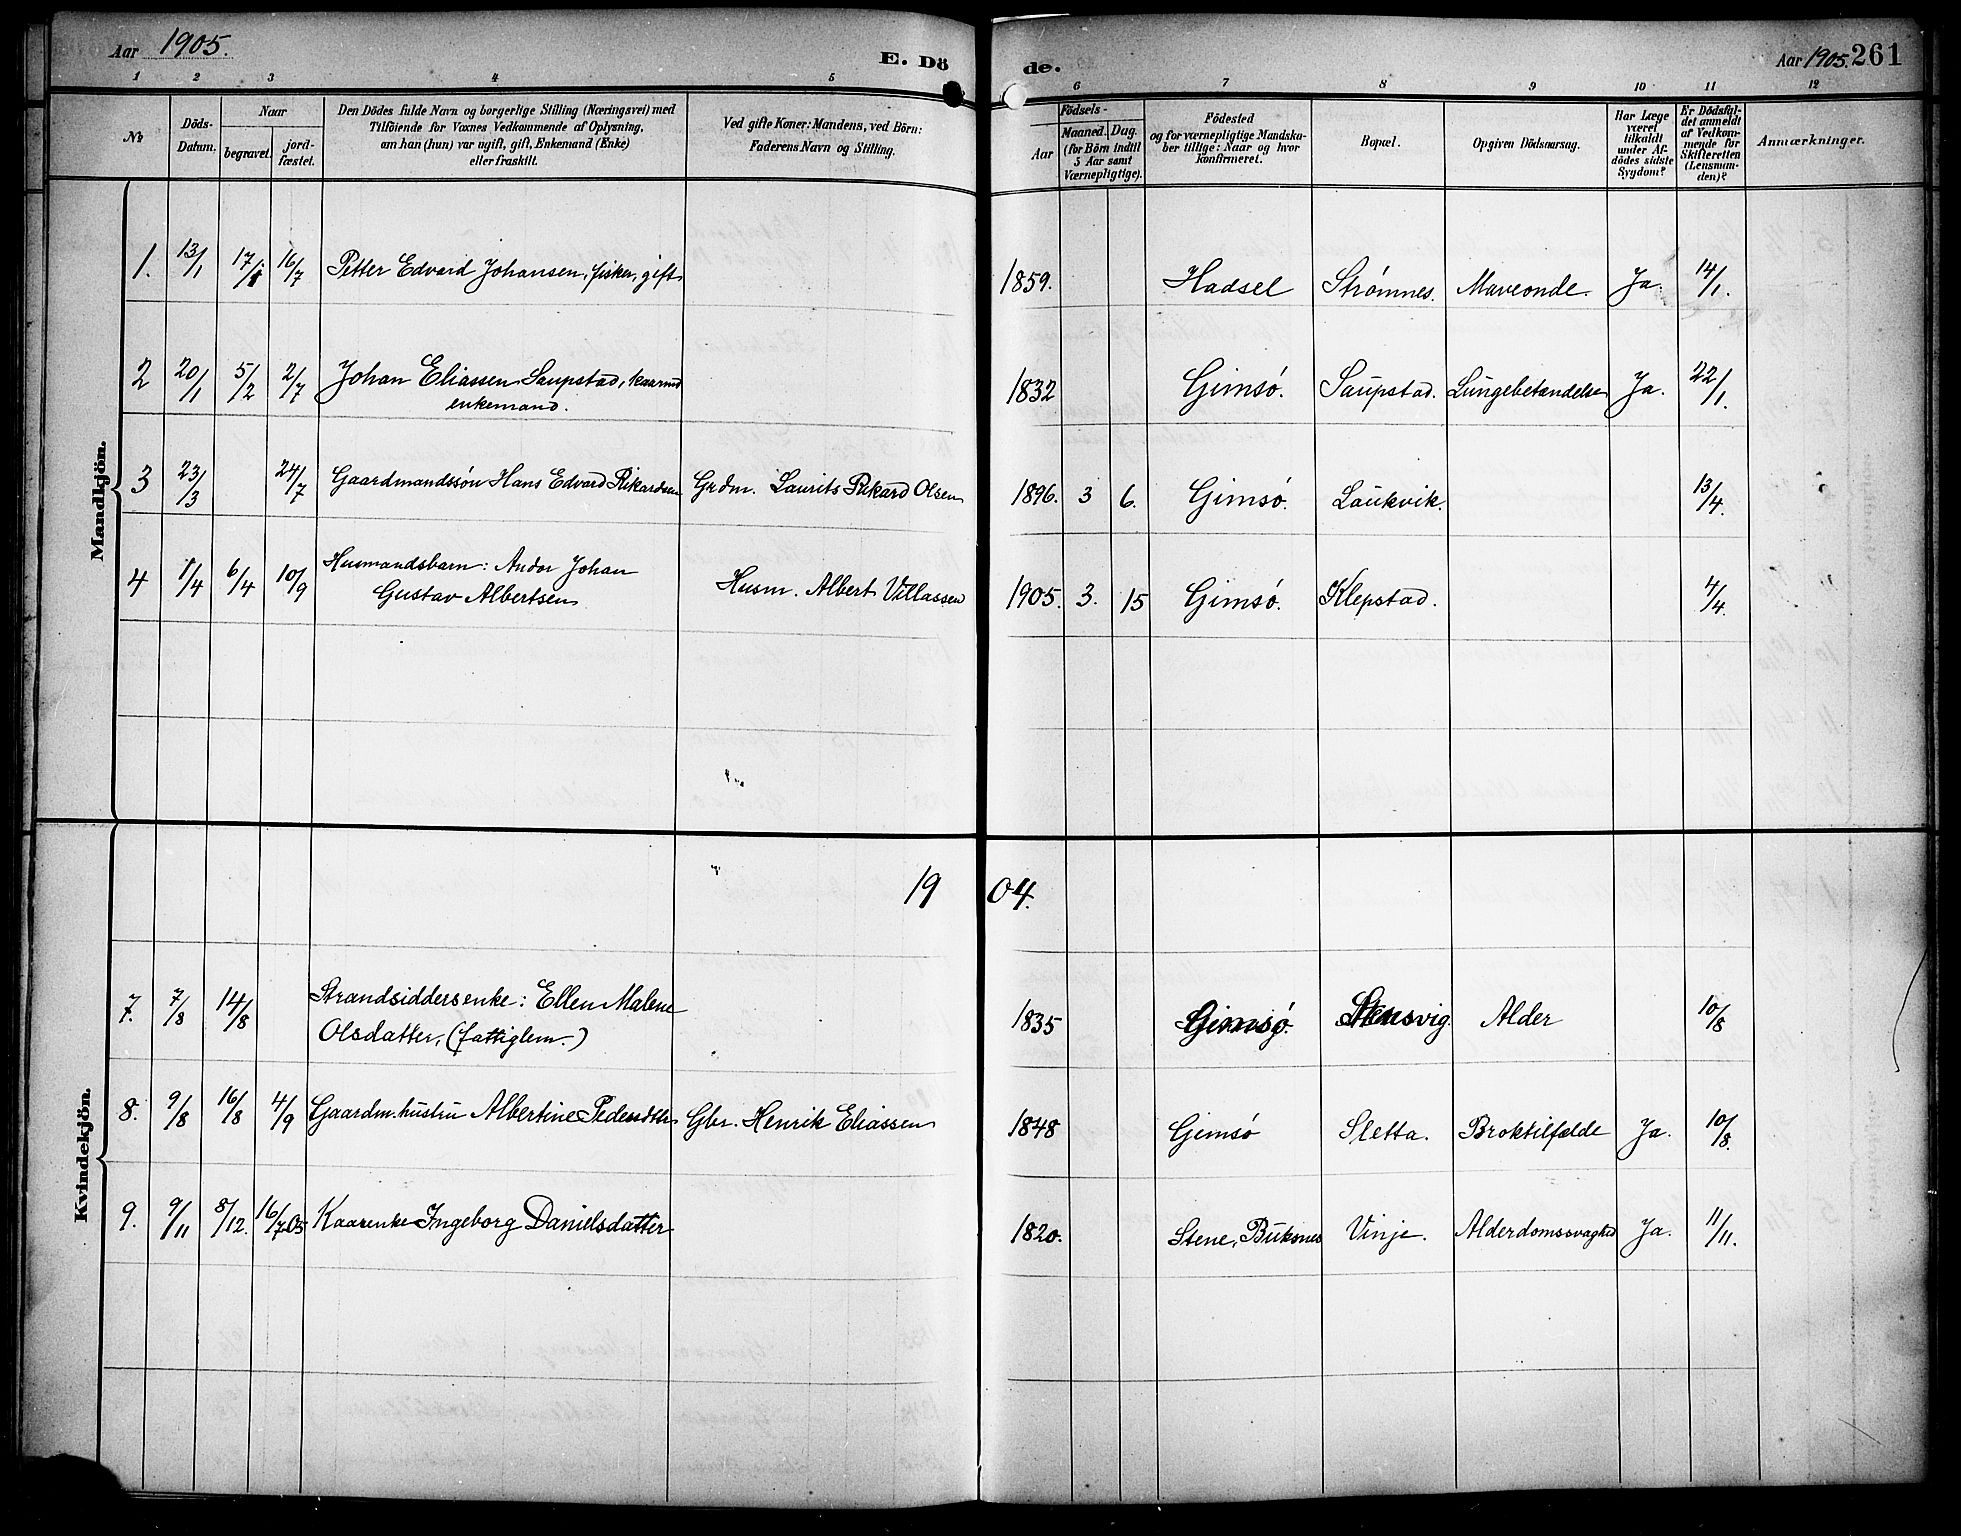 Aar 1905. E. Dö de. Aar 1905. 261
1 2 3 4 5 6 7 8 9 10 11 12
No
Döds-Datum.
Naar
begravet.
jord-fæstet.
Den Dödes fulde Navn og borgerlige Stilling (Næringsvei) med
Tilföiende for Voxnes Vedkommende af Oplysning,
om han (hun) var ugift, gift, Enkemand (Enke)
eller fraskilt.
Ved gifte Koner: Mandens, ved Börn:
Faderens Navn og Stilling.
Födsels-
Aar
Maaned. Dag.
(for Börn indtil
5 Aar samt
Værnepligtige).
Födested
og for værnepligtige Mandska-
ber tillige: Naar og hvor
konfirmeret.
Bopæl.
Opgiven Dödsaarsag.
Har Læge
været
tilkaldt
under Af-
dödes sidste
Sygdom?
Er Dödsfal-
det anmeldt
af Vedkom-
mende for
Skifteretten
(Lensman-
den)?
Anmærkninger.
Mandkjön.
1. 13/1 17/1 16/7 Petter Edvard Johansen, fisker, gift 1859. Hadsel Strømnes. Maveonde. Ja. 14/1.
2 20/1 5/2 2/7 Johan Eliassen Saupstad, kaarmd 1832 Gimsø. Saupstad. Lungebetændelse Ja. 22/1.
enkemand.
3 23/3 24/7 Gaardmandssøn Hans Edvard Rikardsen Grdm. Laurits Rikard Olsen 1896. 3 6. Gimsø. Laukvik. 13/4.
4 1/4 6/4 10/9 Husmandsbarn: Andor Johan
Gustav Albertsen Husm. Albert Villassen 1905. 3. 15 Gimsø. Klepstad. 4/4.
Kvindekjön.
1904.
7. 7/8 14/8 Strandsiddersenke: Ellen Malene
Olsdatter, (fattiglem.) 1835 Gimsø. Stensvig. Alder 10/8
8. 9/8 16/8 4/9 Gaardm.hustru Albertine Pedersdtr Gbr. Henrik Eliassen 1848 Gimsø Sletta. Broktilfælde Ja. 10/8.
9. 9/11 8/12. 16/7 05 Kaarenke Ingeborg Danielsdatter 1820. Stene, Buksnes Vinje. Alderdomssvaghed Ja. 11/11.